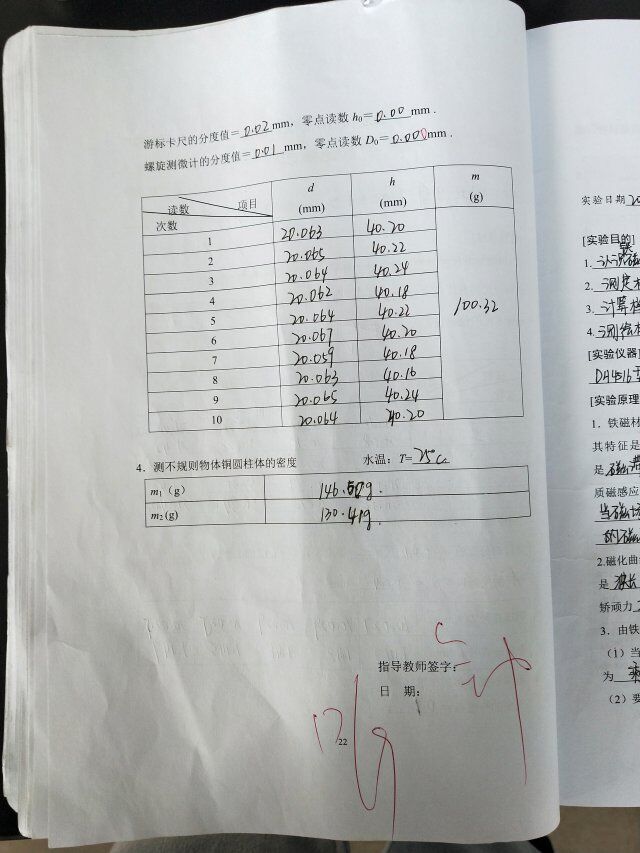 游标卡尺的分度值=0.02mm，零点读数 h₀=0.00mm.
螺旋测微计的分度值=0.01mm，零点读数 D₀=0.000mm.
读数 项目 d (mm) h (mm) m (g)
次数
1 20.063 40.20
2 20.065 40.22
3 20.064 40.24
4 20.062 40.18
5 20.064 40.22 100.32
6 20.067 40.20
7 20.059 40.18
8 20.063 40.16
9 20.065 40.24
10 20.064 40.20
4．测不规则物体铜圆柱体的密度 水温：T=25℃
m₁（g） 146.50g.
m₂(g) 130.41g.
指导教师签字：
日 期：
22
实验日期 20
[实验目的]
1.
2. 测定
3. 计算
4. 测绘
[实验仪器]
DH4516
[实验原理
1．铁磁材
其特征是
是 磁滞
质磁感应
当磁
的磁
2.磁化曲
是
矫顽力
3．由铁
（1）当
为
（2）要